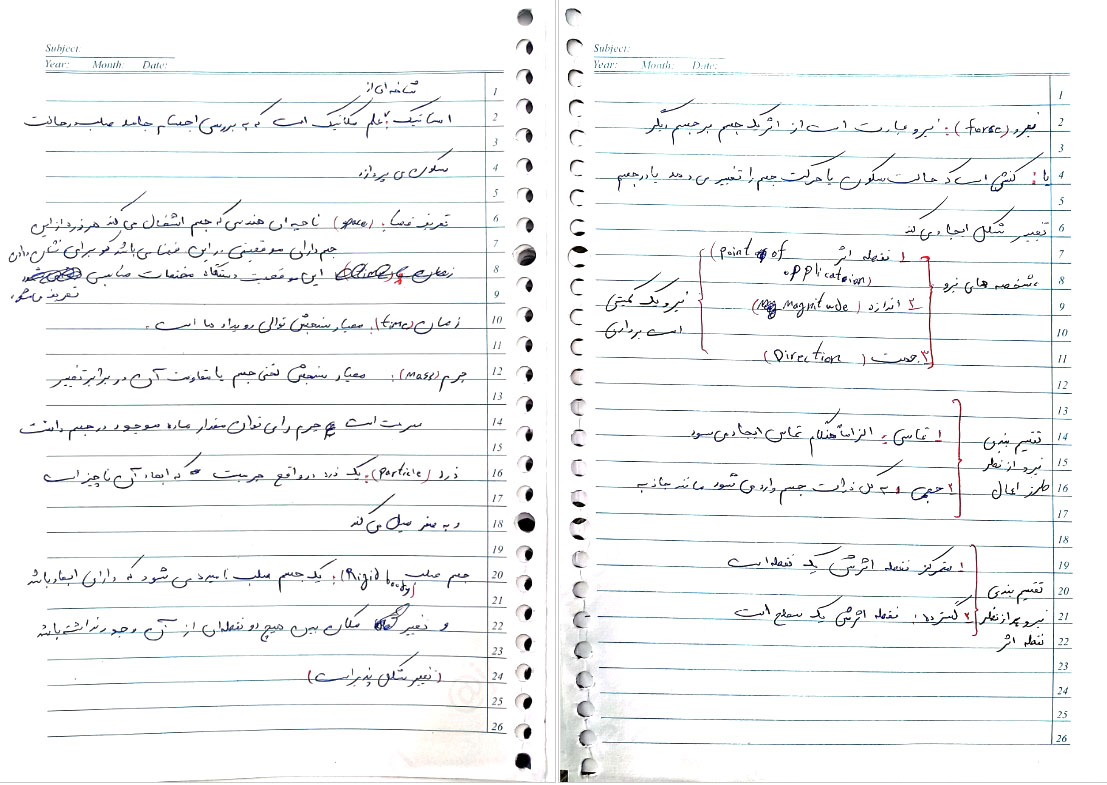 Subject:
Year: Month: Date:
شاخه ای از
استاتیک: علم مکانیک است که به بررسی اجسام جامد صلب در حالت
سکون می پردازد
تعریف فضا: (space) ناحیه ای هندسی که جسم اشغال می کند هر ذره از این
جسم دارای موقعیتی در این فضا می باشد که برای نشان دادن
این موقعیت دستگاه مختصات مناسبی
تعریف می شود
زمان (time): معیار سنجش توالی رویداد ها است.
جرم (Mass): معیار سنجش لختی جسم یا مقاومت آن در برابر تغییر
سرعت است جرم را می توان مقدار ماده موجود در جسم دانست
ذره (Particle): یک ذره در واقع جرمیست که ابعاد آن ناچیز است
و به صفر میل می کند
جسم صلب (Rigid body): یک جسم صلب نامیده می شود که دارای ابعاد باشد
و تغییر مکان بین هیچ دو نقطه ای از آن وجود نداشته باشد
(تغییر شکل پذیر است)
1
2
3
4
5
6
7
8
9
10
11
12
13
14
15
16
17
18
19
20
21
22
23
24
25
26
Subject:
Year: Month: Date:
نیرو (forse): نیرو عبارت است از اثر یک جسم بر جسم دیگر
یا: کنشی است که حالت سکون یا حرکت جسم را تغییر می دهد یا در جسم
تغییر شکل ایجاد می کند
مشخصه های نیرو
1 نقطه اثر (point of
applicataion)
2 اندازه (Magnitude)
3 جهت (Direction)
نیرو یک کمیتی
است برداری
تقسیم بندی
نیرو از نظر
طرز اعمال
1 تماسی: الزاماً هنگام تماس ایجاد می شود
2 حجمی به کل ذرات جسم وارد می شود مانند جاذبه
تقسیم بندی
نیرو از نظر
نقطه اثر
1 متمرکز نقطه اثرش یک نقطه است
2 گسترده: نقطه اثرش یک سطح است
1
2
3
4
5
6
7
8
9
10
11
12
13
14
15
16
17
18
19
20
21
22
23
24
25
26